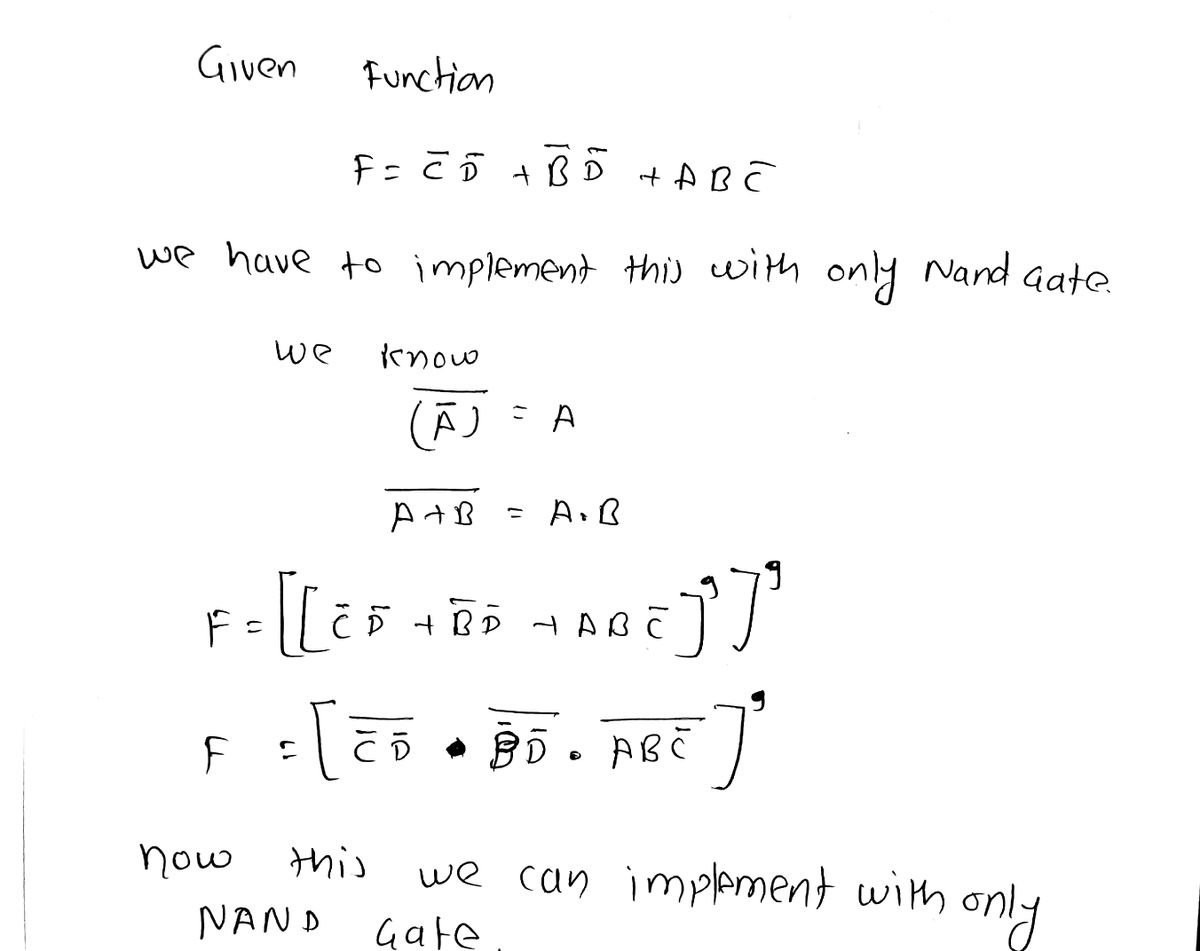 Given Function
F = C̅ D̅ + B̅ D̅ + A B C̅
we have to implement this with only Nand Gate.
we know
\overline{(A̅)} = A
\overline{A+B} = A.B
F = [[C̅ D̅ + B̅ D̅ + A B C̅]']'
F = [\overline{C̅ D̅} . \overline{B̅ D̅} . \overline{A B C̅}]'
now this we can implement with only
NAND Gate.